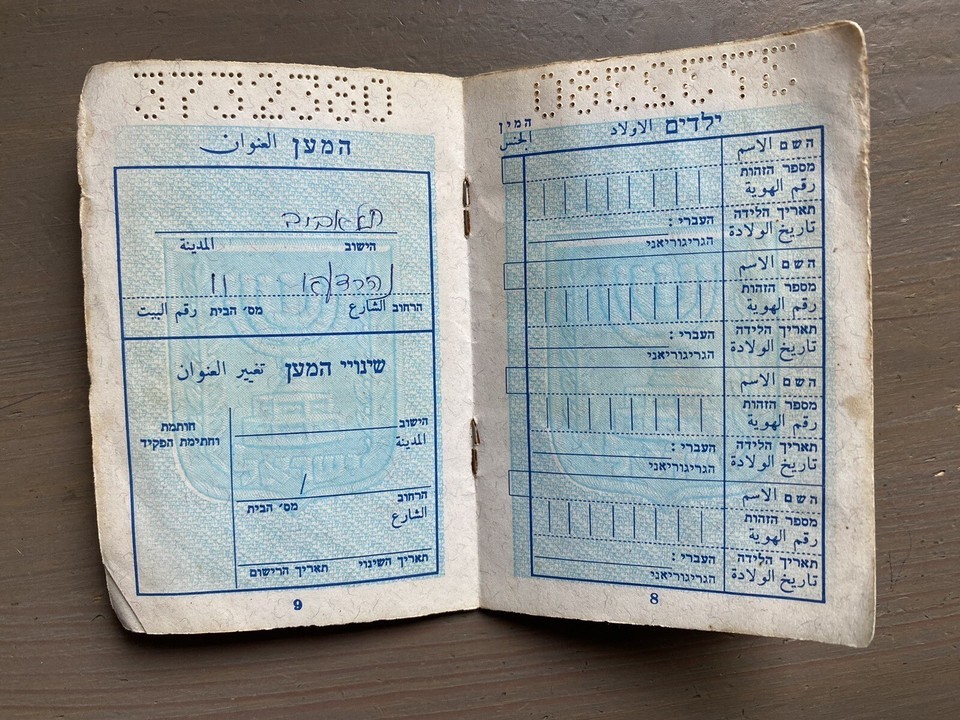 ילדים الاولاد
המין
الجنس
השם الاسم
מספר הזהות
رقم الهوية
תאריך הלידה העברי :
تاريخ الولادة הגריגוריאני
השם الاسم
מספר הזהות
رقم الهوية
תאריך הלידה העברי :
تاريخ الولادة הגריגוריאני
השם الاسم
מספר הזהות
رقم الهوية
תאריך הלידה העברי :
تاريخ الولادة הגריגוריאני
השם الاسم
מספר הזהות
رقم الهوية
תאריך הלידה העברי :
تاريخ الولادة הגריגוריאני
8
3732380
המען العنوان
תל אביב
הישוב المدينة
נהרדעא 11
הרחוב الشارع מס׳ הבית رقم البيت
שינויי המען تغيير العنوان
הישוב
المدينة
חותמת
וחתימת הפקיד
הרחוב מס׳ הבית
الشارع
תאריך השינוי תאריך הרישום
9